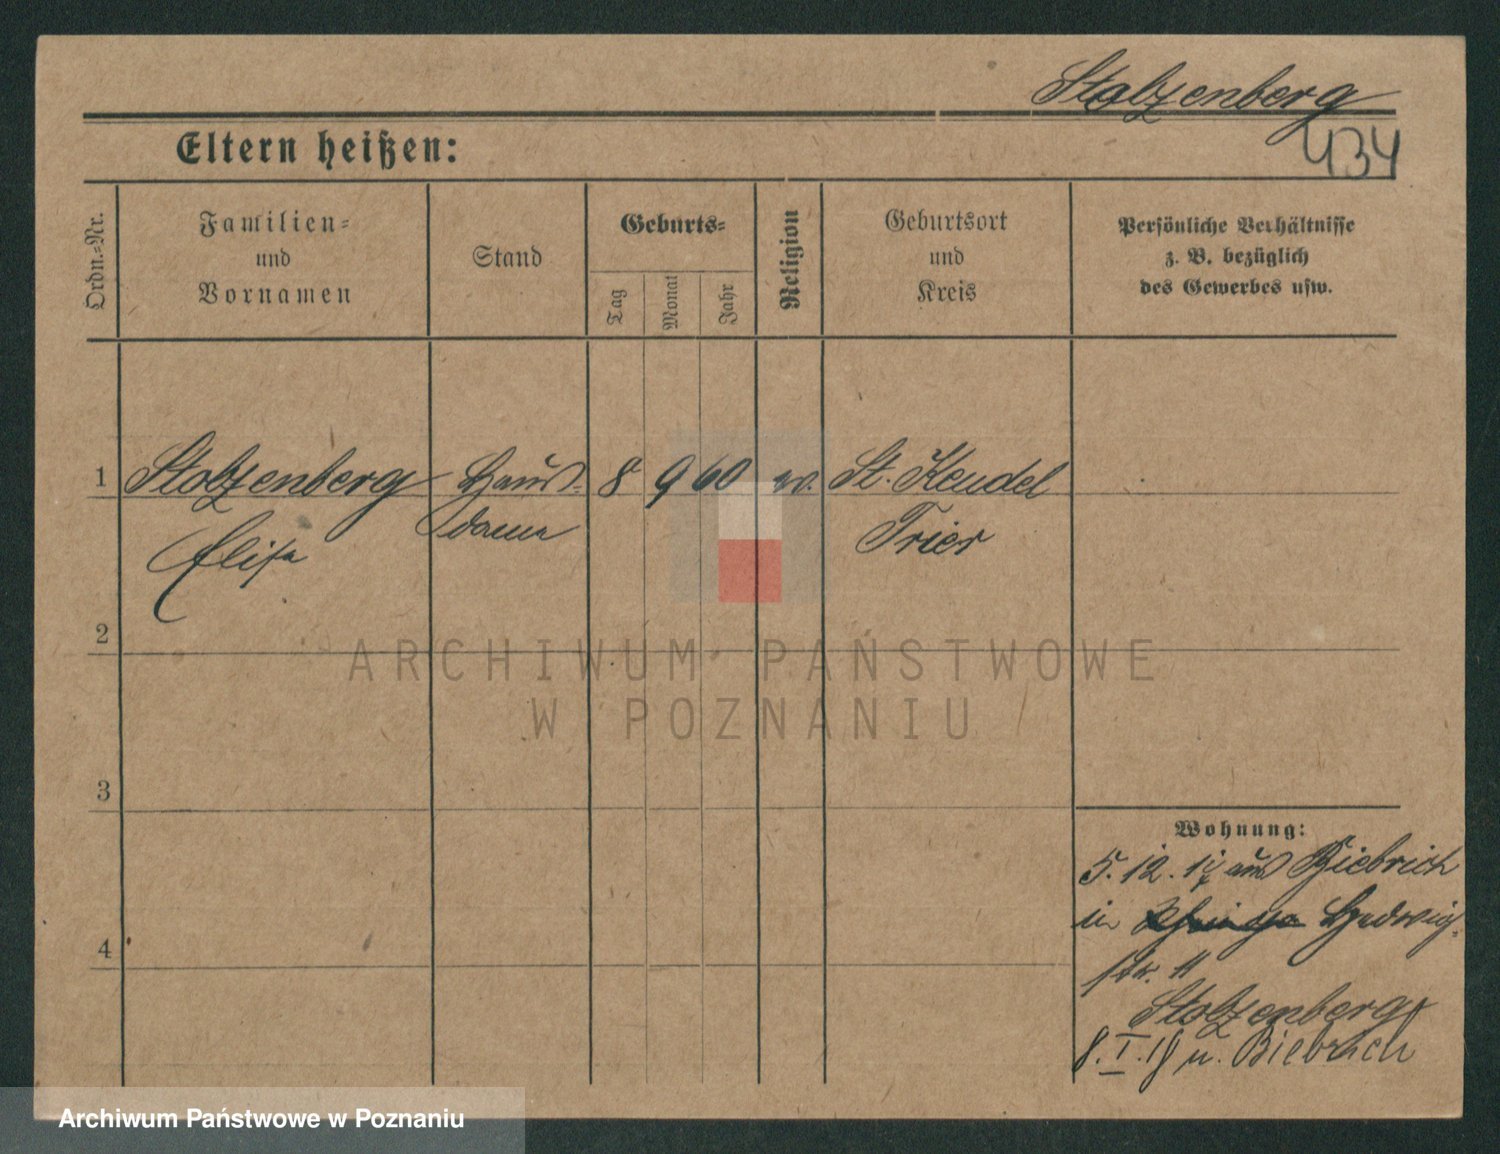 Stolzenberg
434
Eltern heißen:
Ordn.-Nr.
Familien-
und
Vornamen
Stand
Geburts-
Tag
Monat
Jahr
Religion
Geburtsort
und
Kreis
Persönliche Verhältnisse
z. B. bezüglich
des Gewerbes usw.
1
Stolzenberg
Elise
Haus-
dame
8
9
60
ev.
St. Kendel
Trier
2
ARCHIWUM PAŃSTWOWE
W POZNANIU
3
4
Wohnung:
5. 12. 17 aus Biebrich
in Hedwig-
str. 11
Stolzenberg
8. I. 18 n. Biebrich
Archiwum Państwowe w Poznaniu